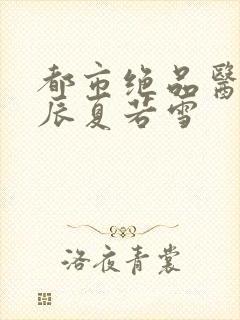 都市绝品醫
辰夏若雪
洛夜青裳